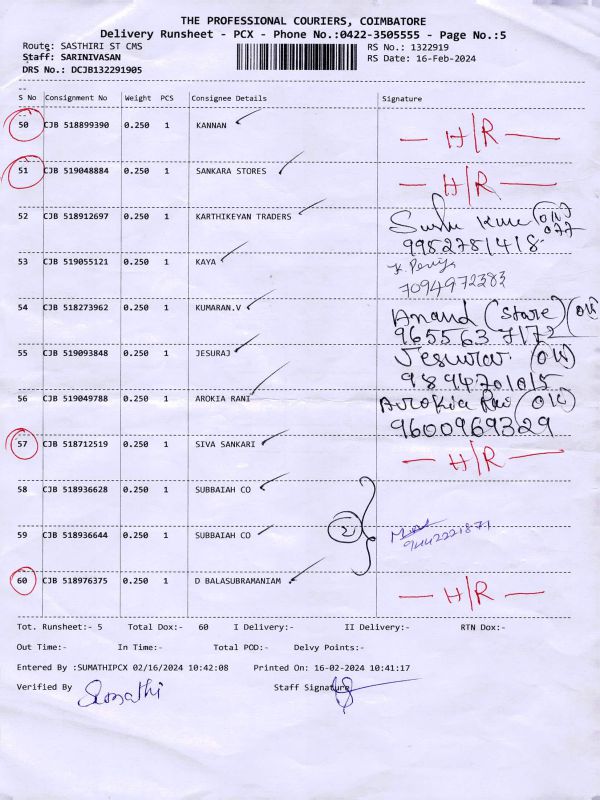 THE PROFESSIONAL COURIERS, COIMBATORE
Delivery Runsheet - PCX - Phone No.:0422-3505555 - Page No.:5
Route: SASTHIRI ST CMS RS No.: 1322919
Staff: SARINIVASAN RS Date: 16-Feb-2024
DRS No.: DCJB132291905
S No Consignment No Weight PCS Consignee Details Signature
50 CJB 518899390 0.250 1 KANNAN — H/R —
51 CJB 519048884 0.250 1 SANKARA STORES — H/R —
52 CJB 518912697 0.250 1 KARTHIKEYAN TRADERS
9982781418
53 CJB 519055121 0.250 1 KAYA
7094972383
54 CJB 518273962 0.250 1 KUMARAN.V Anand (store)
9655637172
55 CJB 519093848 0.250 1 JESURAJ
9894701015
56 CJB 519049788 0.250 1 AROKIA RANI
9600969329
57 CJB 518712519 0.250 1 SIVA SANKARI — H/R —
58 CJB 518936628 0.250 1 SUBBAIAH CO
2
59 CJB 518936644 0.250 1 SUBBAIAH CO
9442221871
60 CJB 518976375 0.250 1 D BALASUBRAMANIAM — H/R —
Tot. Runsheet:- 5 Total Dox:- 60 I Delivery:- II Delivery:- RTN Dox:-
Out Time:- In Time:- Total POD:- Delvy Points:-
Entered By :SUMATHIPCX 02/16/2024 10:42:08 Printed On: 16-02-2024 10:41:17
Verified By Sumathi Staff Signature